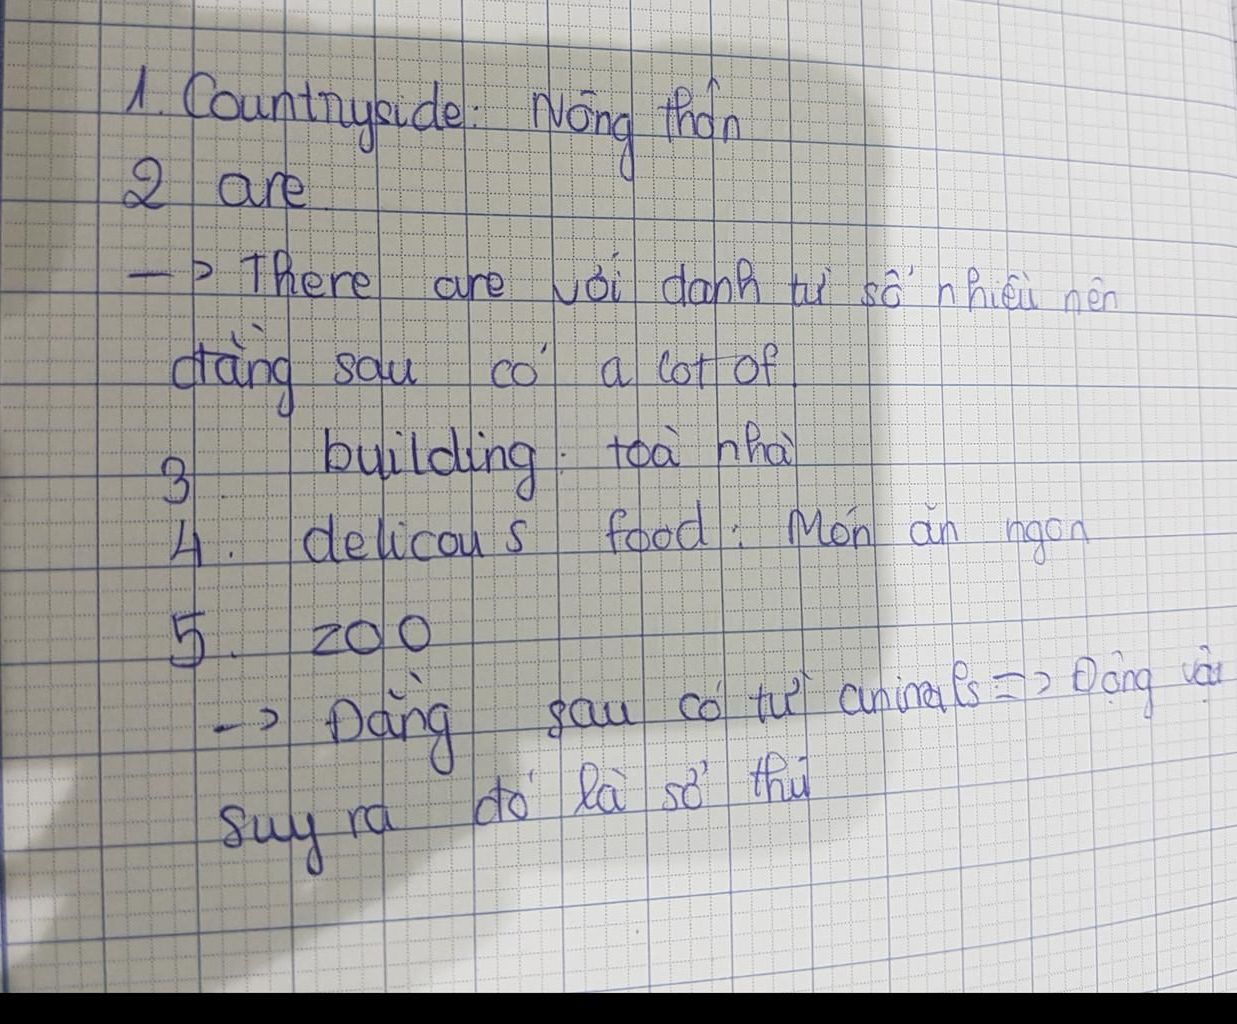 1. Countryside: Nông thôn
2 are
-> There are với danh từ số nhiều nên
đằng sau có a lot of
3. building: toà nhà
4. delicous food: Món ăn ngon
5. zoo
-> Đằng sau có từ animals => Động vật
suy ra đó là sở thú